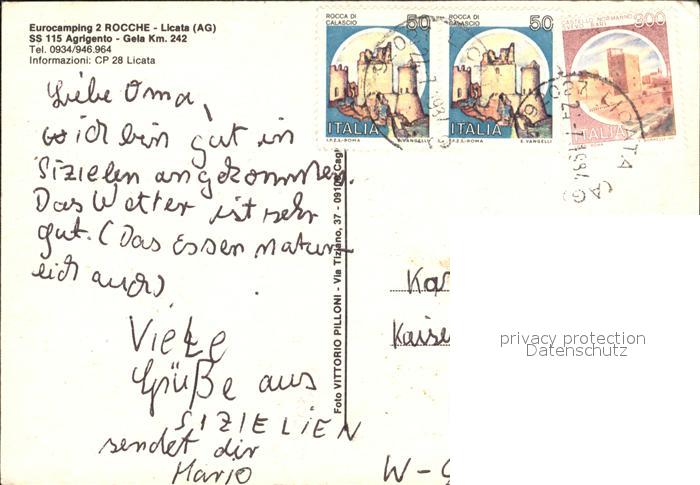 Eurocamping 2 ROCCHE - Licata (AG)
SS 115 Agrigento - Gela Km. 242
Tel. 0934/946.964
Informazioni: CP 28 Licata
Liebe Oma,
ich bin gut in
Sizielen angekommen.
Das Wetter ist sehr
gut. (Das Essen natur-
eich auch)
Viele
Grüße aus
SIZIELIEN
sendet dir
Mario
Foto VITTORIO PILLONI - Via Tiziano, 37 - 09100 Cagl
ROCCA DI
CALASCIO
50
ITALIA
I.P.Z.S.-ROMA E. VANGELLI
ROCCA DI
CALASCIO
50
ITALIA
I.P.Z.S.-ROMA E. VANGELLI
CASTELLO NORMANNO
SVEVO BARI
300
ITALIA
ROMA
LICATA (AG)
Kar
Kaise
privacy protection
Datenschutz
W-